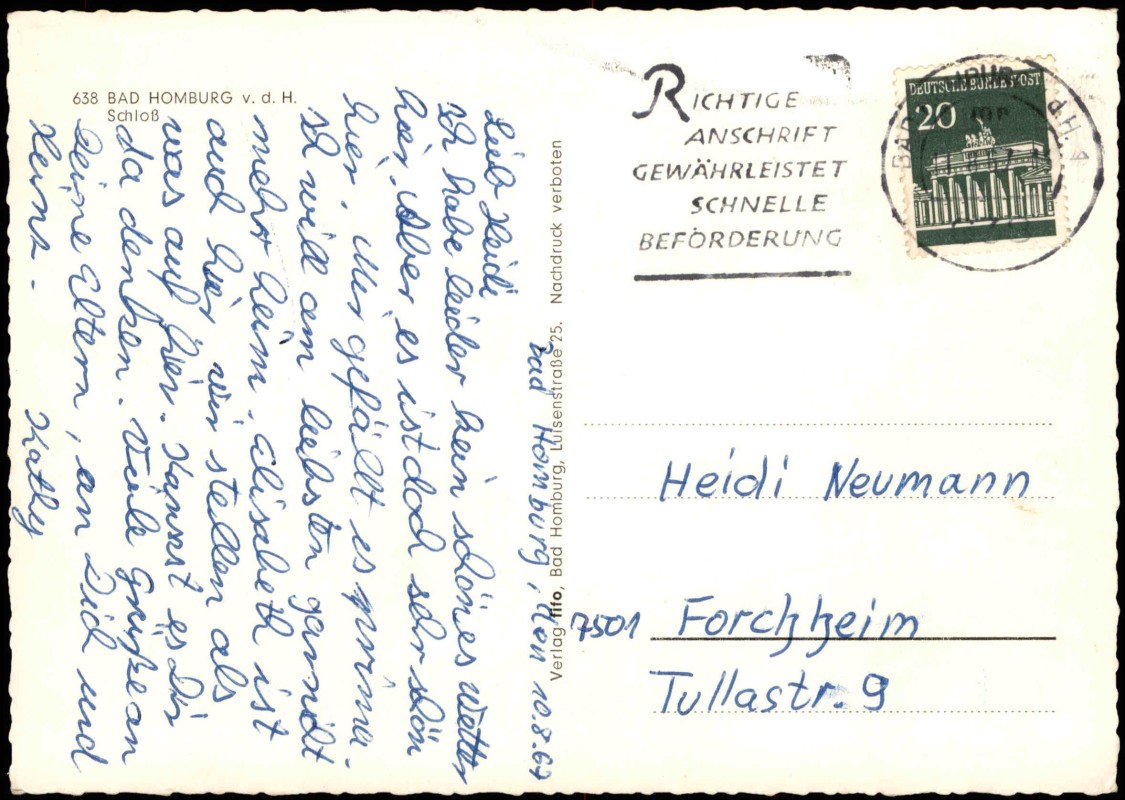 638 BAD HOMBURG v. d. H.
Schloß
Bad Homburg, den 10.8.67
Lieb Heidi
Ich habe leider kein schönes Wetter
hir. Aber es ist doch sehr schön
hier, Mir gefält es prima.
Ich will am liebsten garnicht
mehr heim. Elisabeth ist
auch hir wir stellen als
was auf hir. Kannst es Dir
da denken. Viele Grüße an
Deine Eltern, an Dich und
Heinz.
Kathy
Verlag fifo, Bad Homburg, Luisenstraße 25. Nachdruck verboten
RICHTIGE
ANSCHRIFT
GEWÄHRLEISTET
SCHNELLE
BEFÖRDERUNG
DEUTSCHE BUNDESPOST
20
BAD
v.d.H. 4
Heidi Neumann
7501 Forchheim
Tullastr. 9